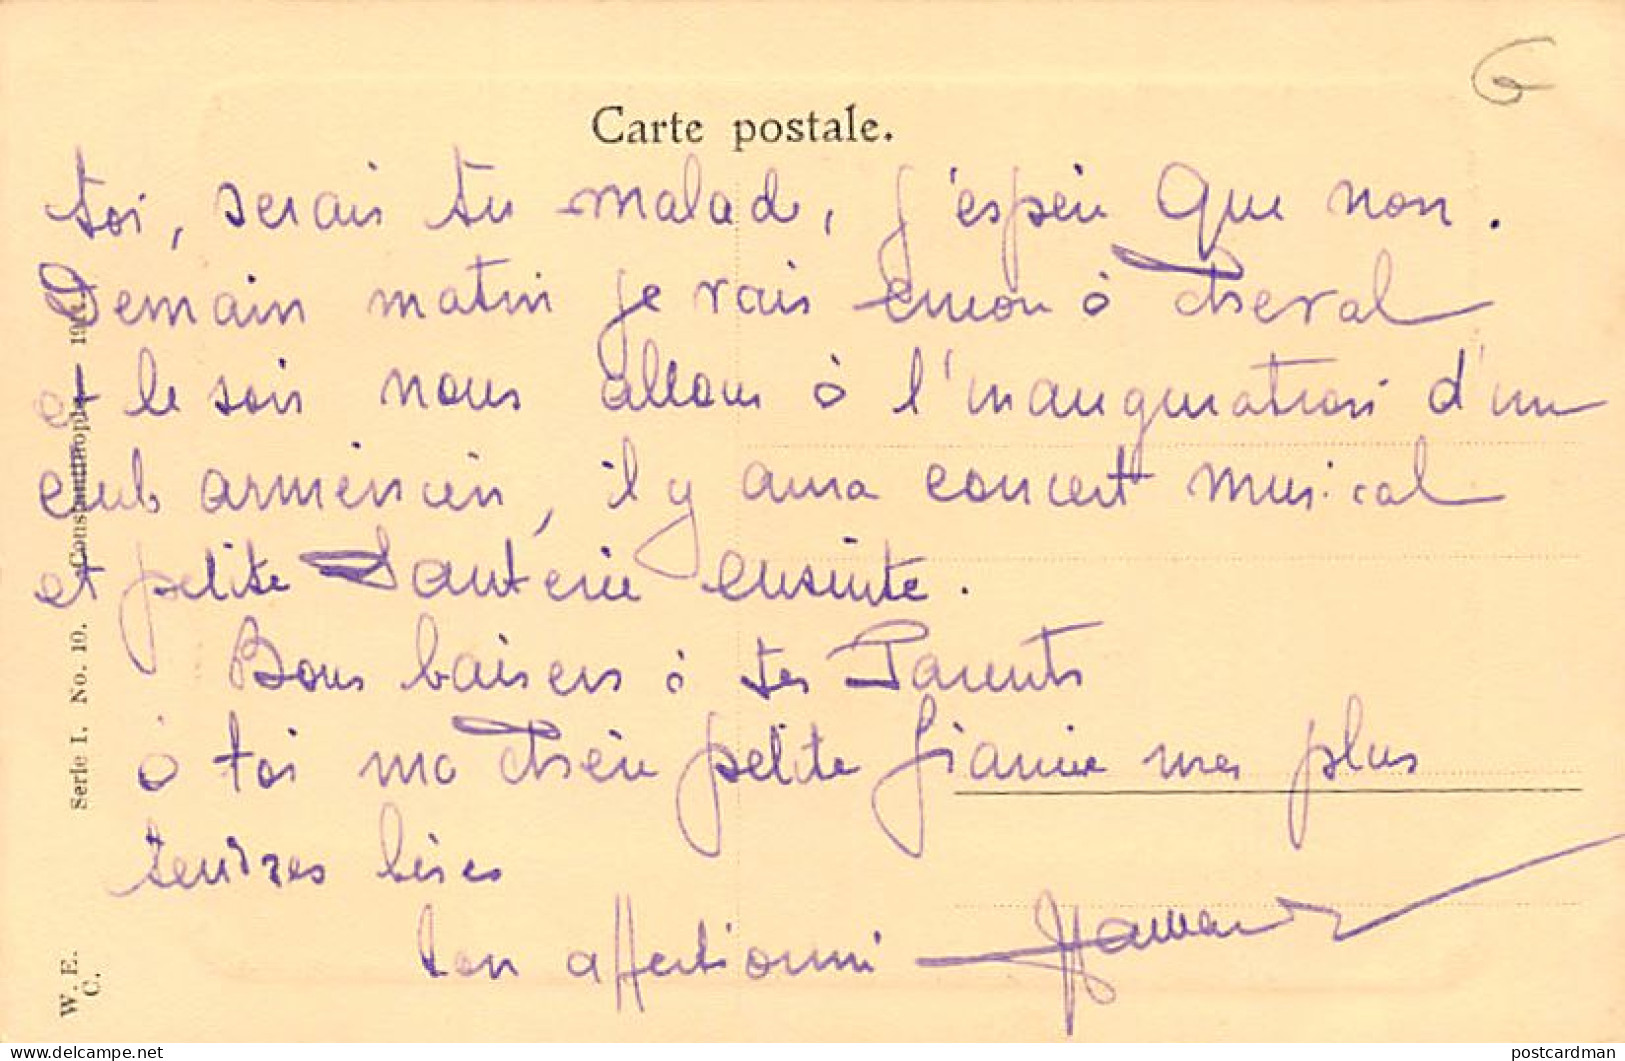 Carte postale.
toi, serais tu malade, j'espère que non.
Demain matin je vais encore à cheval
et le soir nous allons à l'inauguration d'un
club arménien, il y aura concert musical
et petite sauterie ensuite.
Bons baisers à tes Parents
à toi ma chère petite fiancée mes plus
tendres bises
ton affectionné
Serie I. No. 10. Constantinople
W. E. C.
delcampe.net
postcardman